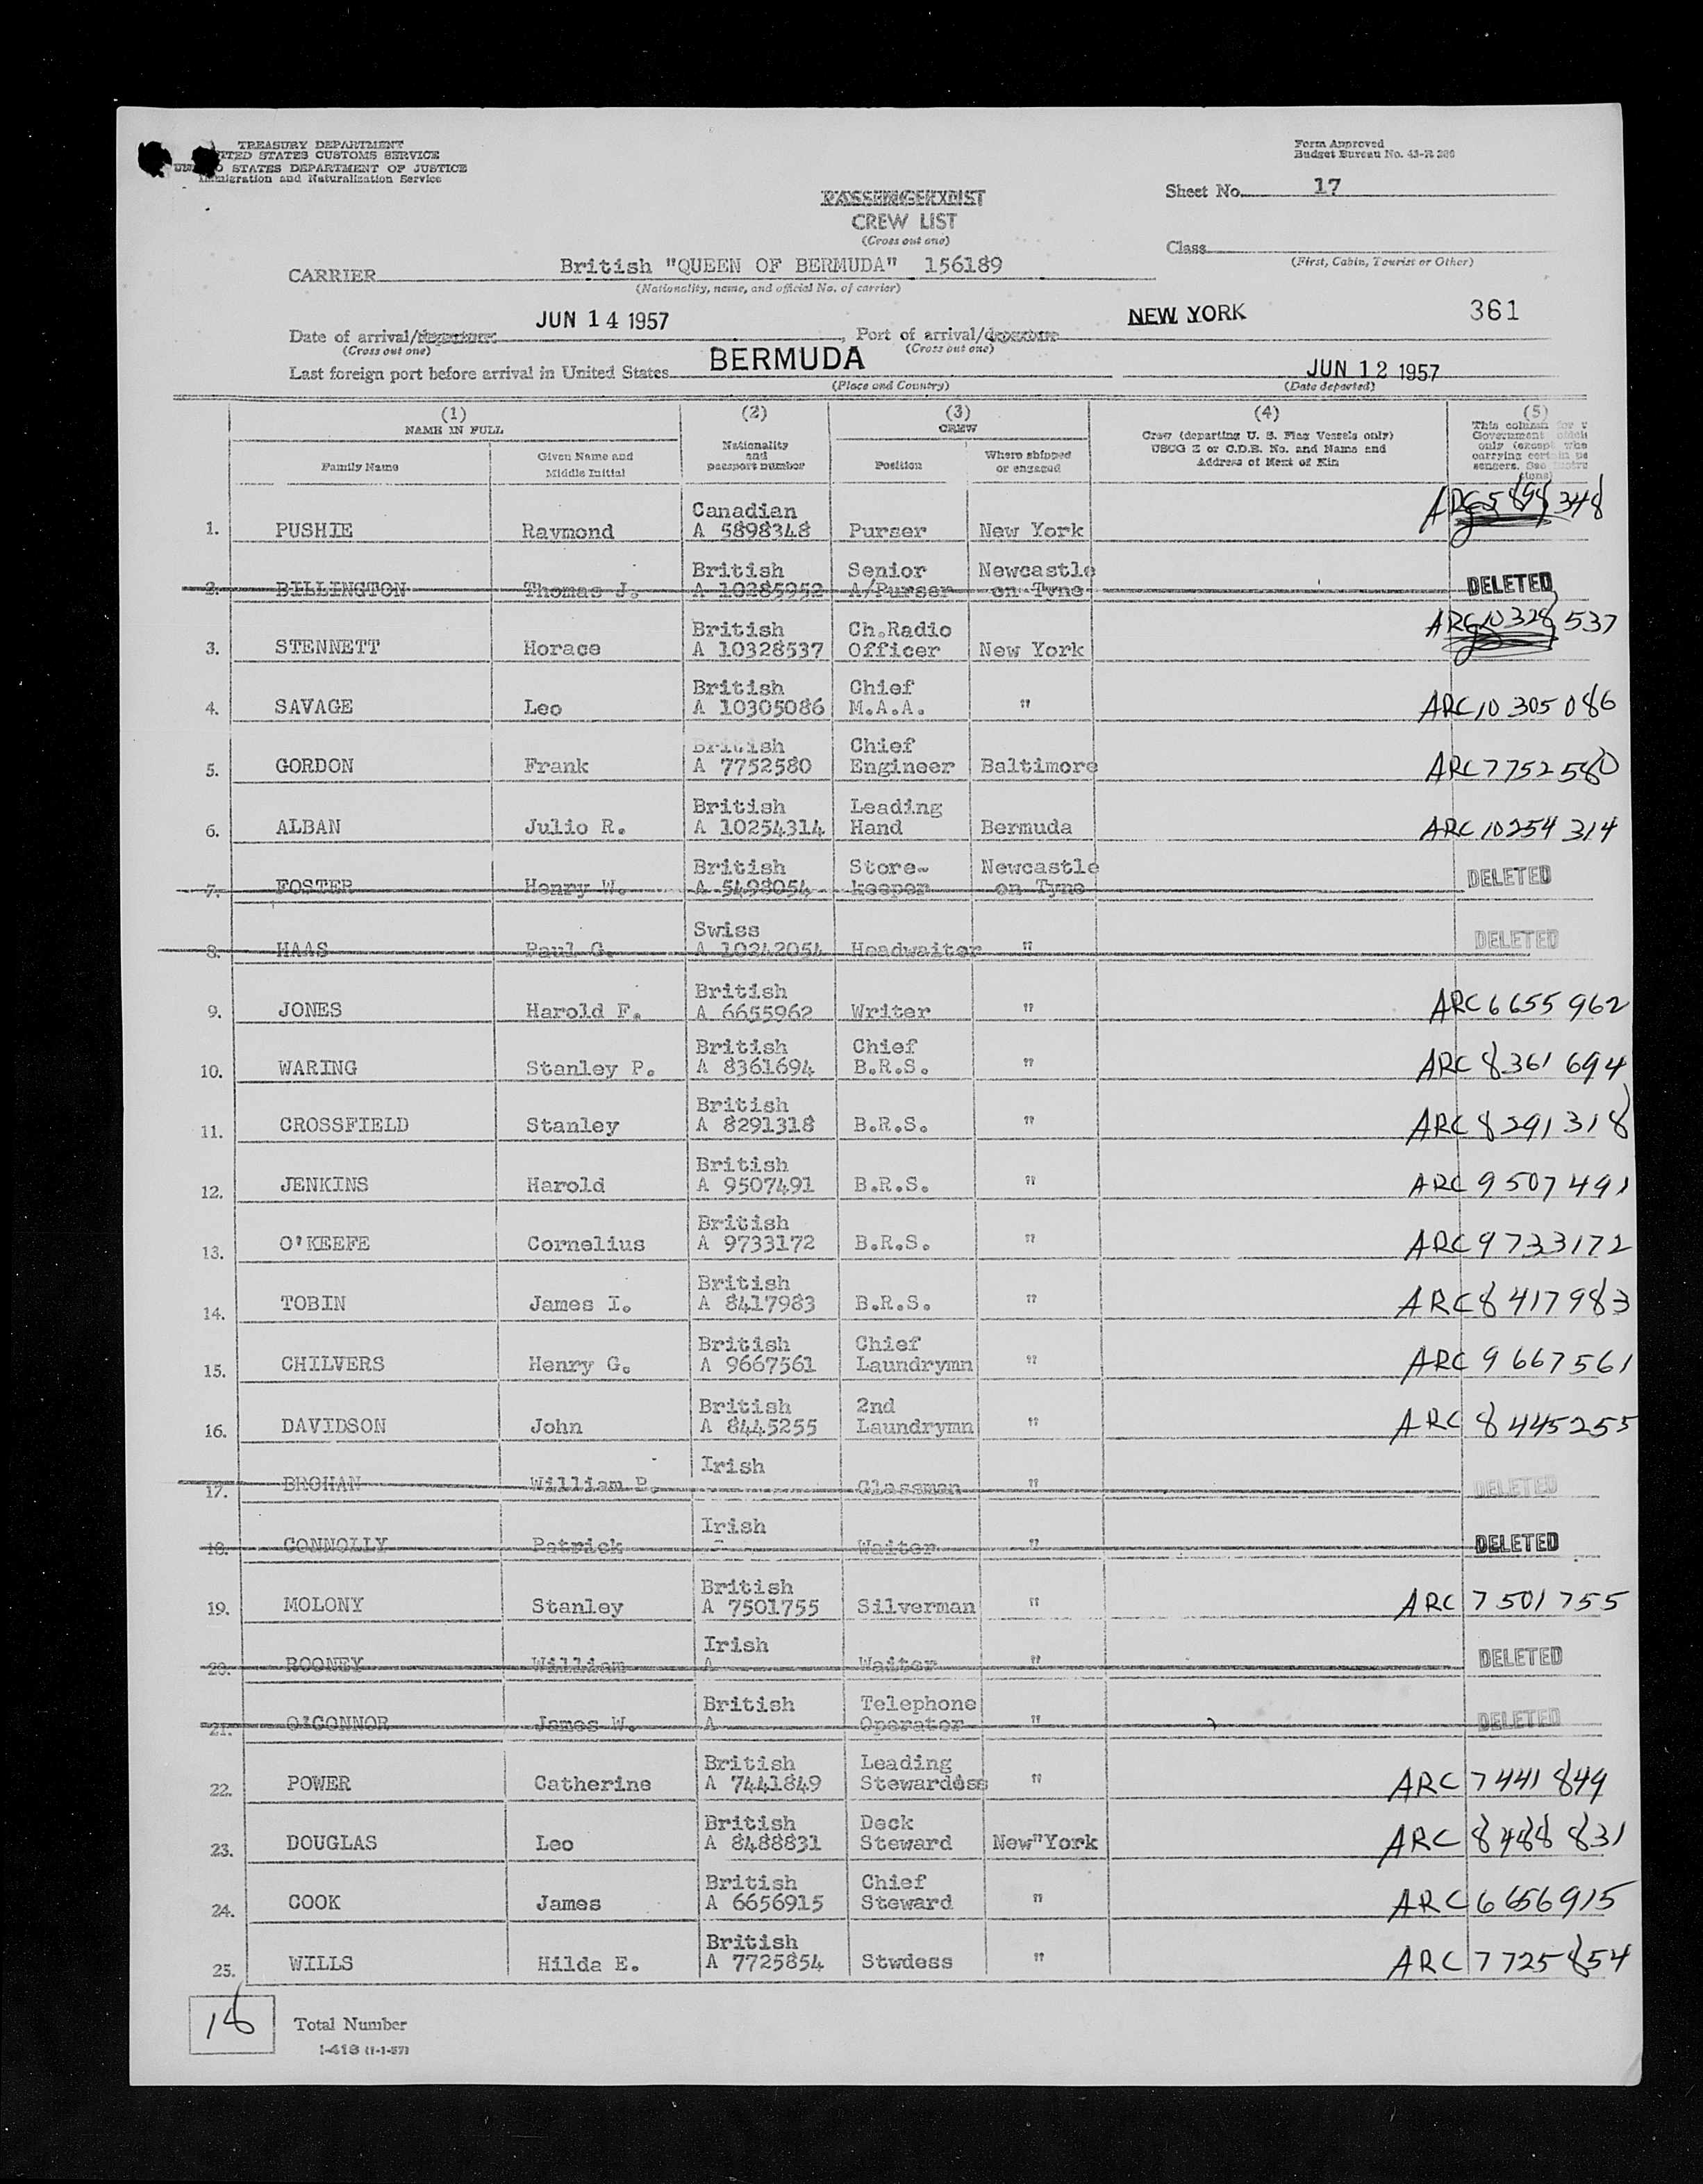 TREASURY DEPARTMENT
UNITED STATES CUSTOMS SERVICE
UNITED STATES DEPARTMENT OF JUSTICE
Immigration and Naturalization Service
Form Approved
Budget Bureau No. 43-R
Sheet No. 17
PASSENGER LIST
CREW LIST
(Cross out one)
Class
(First, Cabin, Tourist or Other)
CARRIER British "QUEEN OF BERMUDA" 156189
(Nationality, name, and official No. of carrier)
Date of arrival/departure JUN 14 1957, Port of arrival/departure NEW YORK 361
(Cross out one) (Cross out one)
Last foreign port before arrival in United States BERMUDA JUN 12 1957
(Place and Country) (Date departed)
(1) (2) (3) (4) (5)
NAME IN FULL CREW
Family Name Given Name and Middle Initial Nationality and passport number Position Where shipped or engaged Crew (departing U. S. Flag Vessels only) USCG Z or C.D.B. No. and Name and Address of Next of Kin This column for Government only (except carrying certain
1. PUSHIE Raymond Canadian A 5898348 Purser New York ARC 5898348
2. BILLINGTON Thomas J. British A 10285952 Senior A/Purser Newcastle on Tyne DELETED
3. STENNETT Horace British A 10328537 Ch.Radio Officer New York ARC 10328537
4. SAVAGE Leo British A 10305086 Chief M.A.A. " ARC 10305086
5. GORDON Frank British A 7752580 Chief Engineer Baltimore ARC 7752580
6. ALBAN Julio R. British A 10254314 Leading Hand Bermuda ARC 10254314
7. FOSTER Henry W. British A 5498054 Store-keeper Newcastle on Tyne DELETED
8. HAAS Paul G. Swiss A 10242054 Headwaiter " DELETED
9. JONES Harold F. British A 6655962 Writer " ARC 6655962
10. WARING Stanley P. British A 8361694 Chief B.R.S. " ARC 8361694
11. CROSSFIELD Stanley British A 8291318 B.R.S. " ARC 8291318
12. JENKINS Harold British A 9507491 B.R.S. " ARC 9507491
13. O'KEEFE Cornelius British A 9733172 B.R.S. " ARC 9733172
14. TOBIN James I. British A 8417983 B.R.S. " ARC 8417983
15. CHILVERS Henry G. British A 9667561 Chief Laundrymn " ARC 9667561
16. DAVIDSON John British A 8445255 2nd Laundrymn " ARC 8445255
17. BROHAN William P. Irish Glassman " DELETED
18. CONNOLLY Patrick Irish Waiter " DELETED
19. MOLONY Stanley British A 7501755 Silverman " ARC 7501755
20. ROONEY William Irish A Waiter " DELETED
21. O'CONNOR James W. British A Telephone Operator " DELETED
22. POWER Catherine British A 7441849 Leading Stewardess " ARC 7441849
23. DOUGLAS Leo British A 8488831 Deck Steward New"York ARC 8488831
24. COOK James British A 6656915 Chief Steward " ARC 6656915
25. WILLS Hilda E. British A 7725854 Stwdess " ARC 7725854
18 Total Number
I-418 (1-1-57)